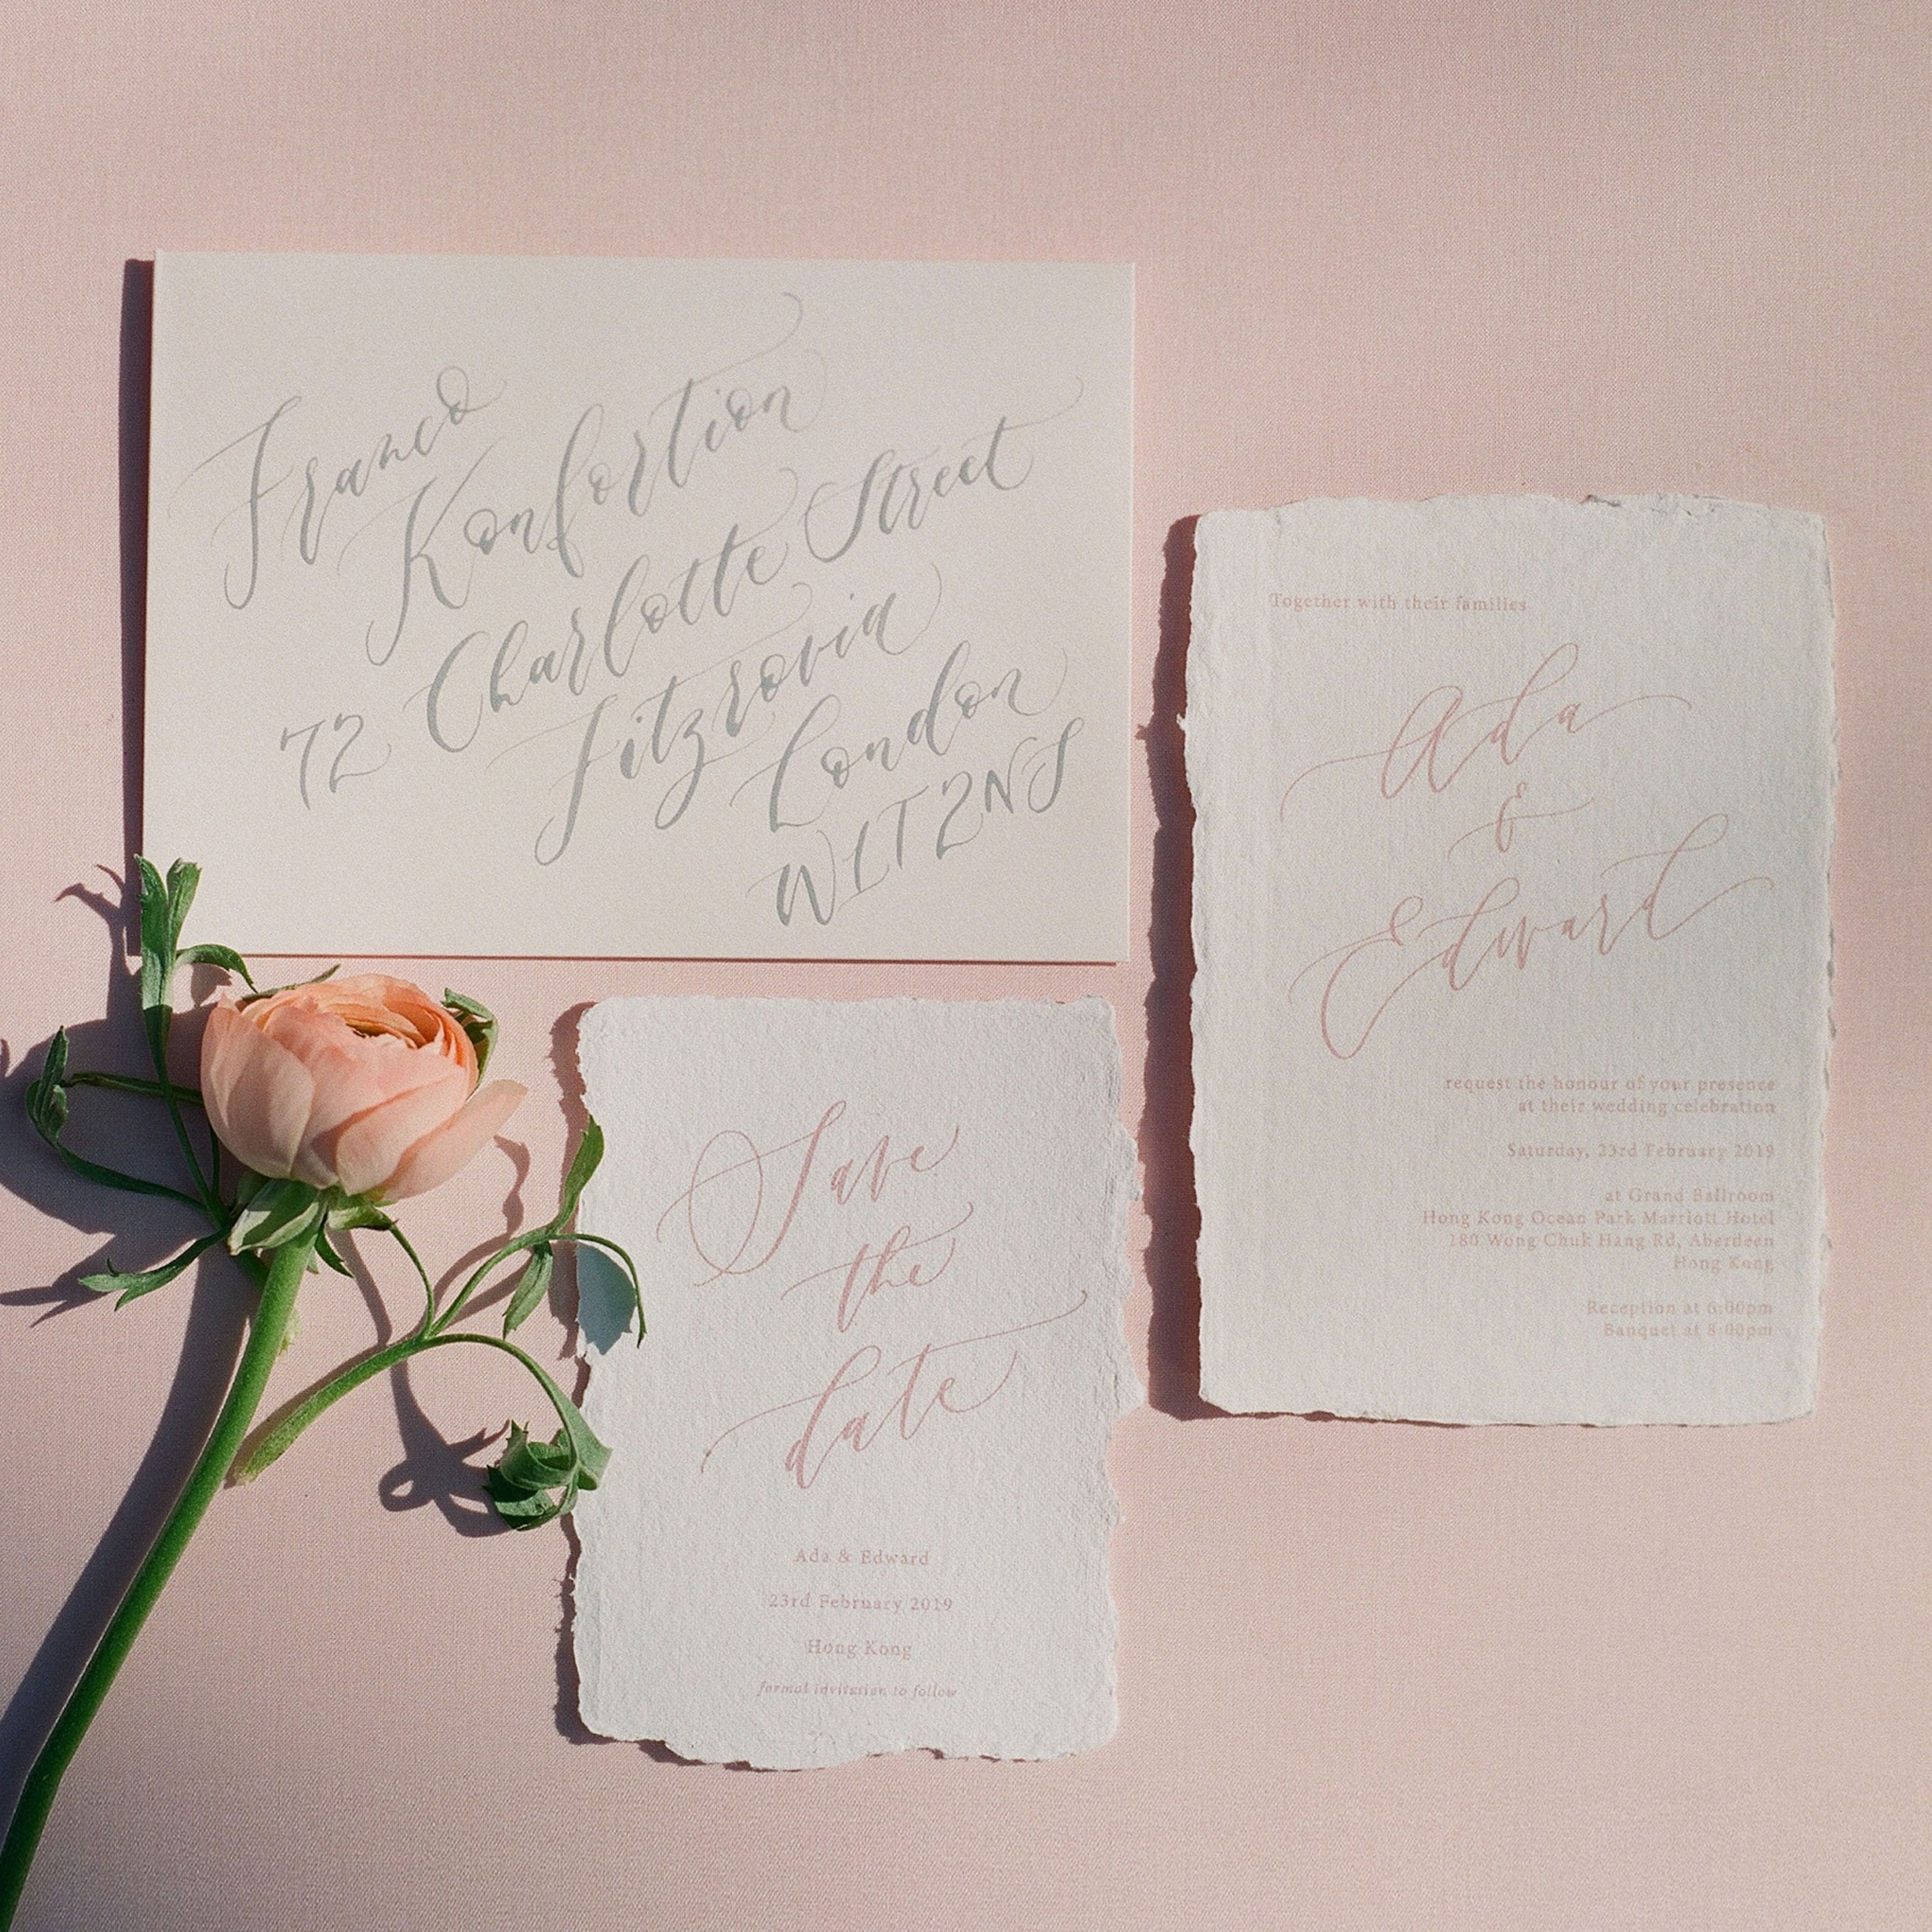 Franco
Konfortion
72 Charlotte Street
Fitzrovia
London
W1T 2NS
Together with their families
Ada
&
Edward
request the honour of your presence
at their wedding celebration
Saturday, 23rd February 2019
at Grand Ballroom
Hong Kong Ocean Park Marriott Hotel
180 Wong Chuk Hang Rd, Aberdeen
Hong Kong
Reception at 6:00pm
Banquet at 8:00pm
Save
the
date
Ada & Edward
23rd February 2019
Hong Kong
formal invitation to follow